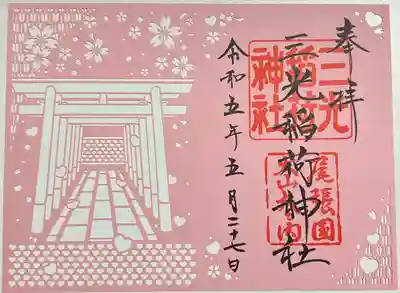 奉拝
三光稲荷神社
三光稲荷神社
尾張国
犬山城内
令和五年五月二十七日